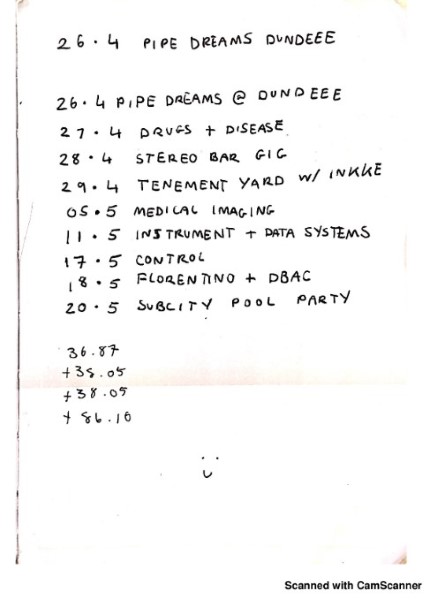 26.4 PIPE DREAMS DUNDEEE
26.4 PIPE DREAMS @ DUNDEEE
27.4 DRUGS + DISEASE
28.4 STEREO BAR GIG
29.4 TENEMENT YARD W/ INKKE
05.5 MEDICAL IMAGING
11.5 INSTRUMENT + DATA SYSTEMS
17.5 CONTROL
18.5 FLORENTINO + DBAC
20.5 SUBCITY POOL PARTY
36.87
+38.05
+38.05
+86.10
Scanned with CamScanner